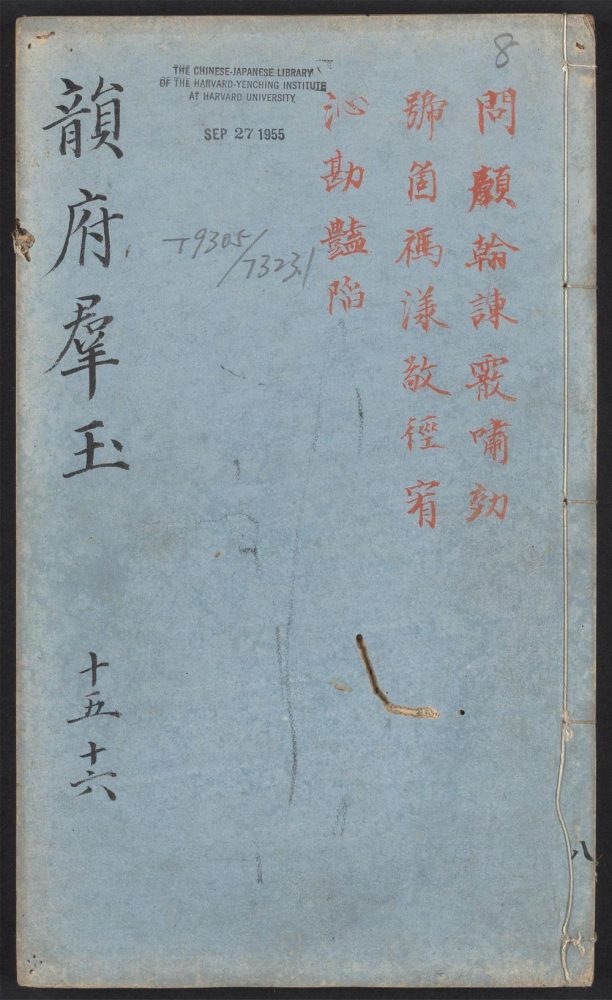 8
問願翰諫霰嘯効
號箇禡漾敬徑宥
沁勘豔陷
THE CHINESE-JAPANESE LIBRARY
OF THE HARVARD-YENCHING INSTITUTE
AT HARVARD UNIVERSITY
SEP 27 1955
T9305/7323.1
韻府羣玉
十五十六
八